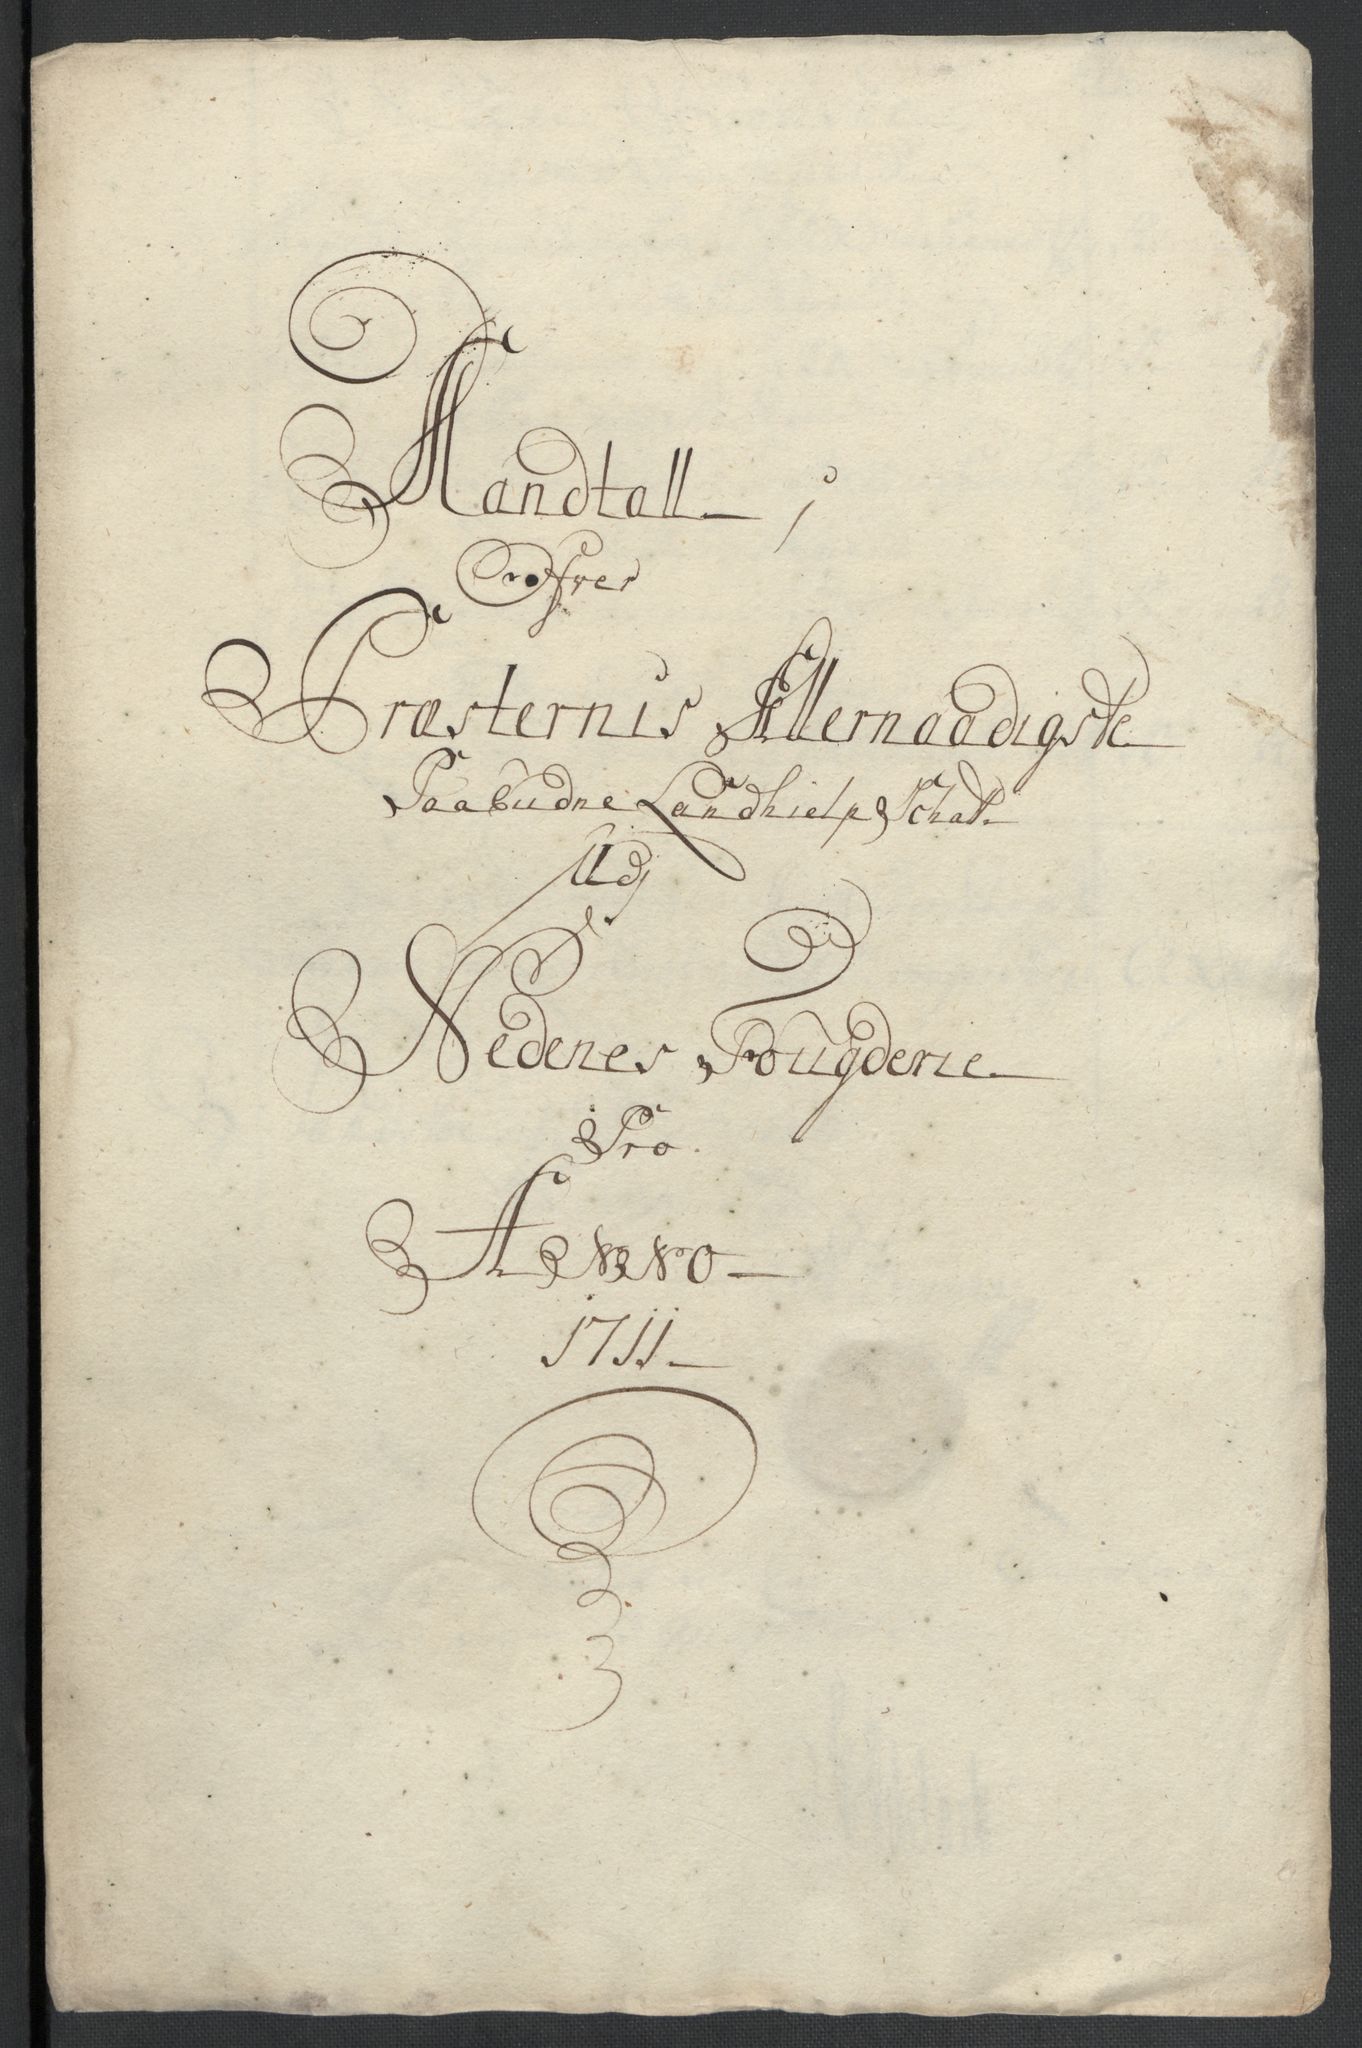 Mandtall
Ofver
Præsternis Allernaadigste
Paabudne Landhielp Schat
Udj
Nedenes Fougderie
Pro
Anno
1711